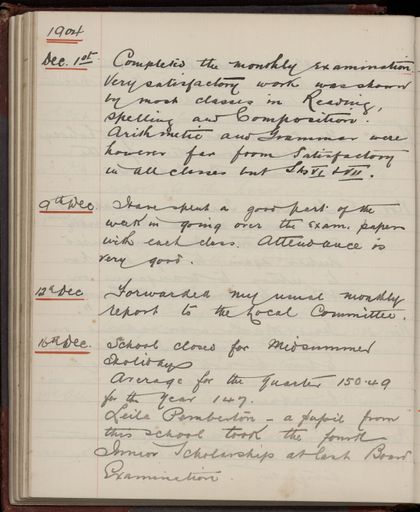 1904
Dec. 1st Completed the monthly examination
Very satisfactory work was shown
by most classes in Reading,
Spelling and Composition.
Arithmetic and Grammar were
however far from Satisfactory
in all classes but Sts VI & VII.
9th Dec. Have spent a good part of the
week in going over the Exam. papers
with each class. Attendance is
very good.
12th Dec Forwarded my usual monthly
report to the Local Committee.
School closed for Midsummer
Holidays
Average for the Quarter 150.49
for the Year 147.
Leila Pemberton - a pupil from
this school took the fourth
Junior Scholarship at last Board
Examination.